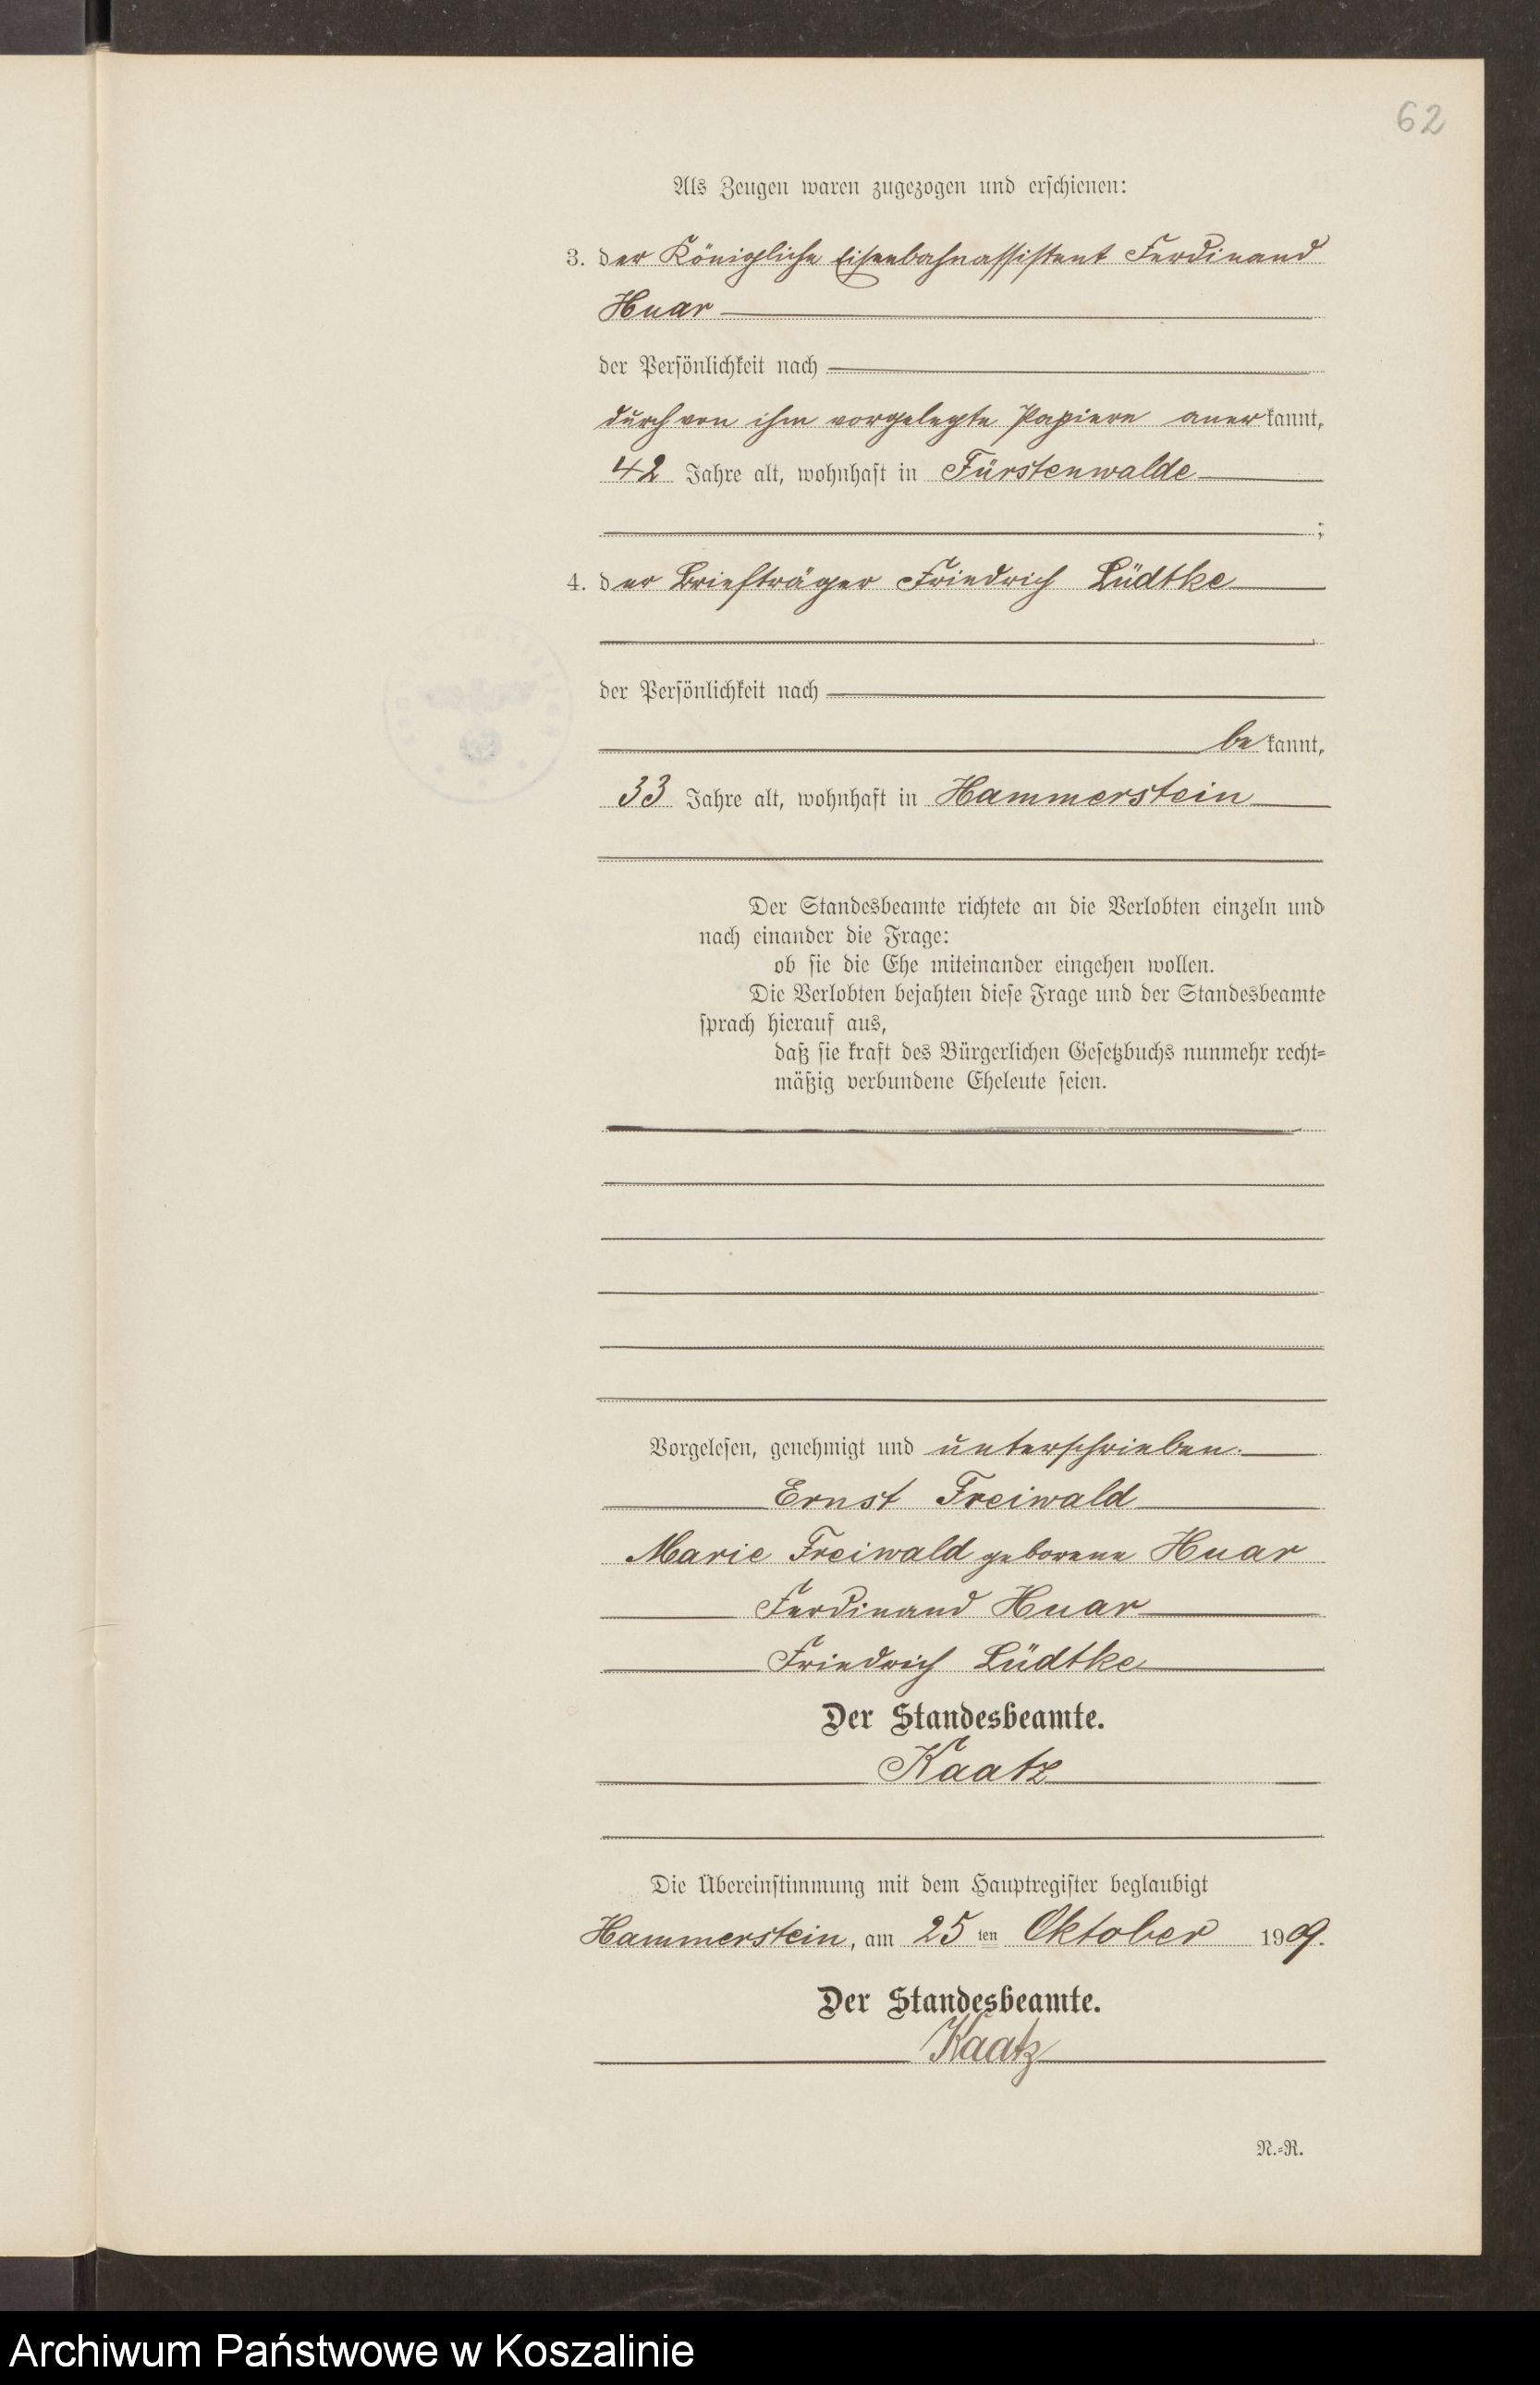 62
Als Zeugen waren zugezogen und erschienen:
3. der Königliche Eisenbahnassistent Ferdinand
Huar
der Persönlichkeit nach
durch von ihm vorgelegte Papiere anerkannt,
42 Jahre alt, wohnhaft in Fürstenwalde
;
4. der Briefträger Friedrich Lüdtke
der Persönlichkeit nach
bekannt,
33 Jahre alt, wohnhaft in Hammerstein
Der Standesbeamte richtete an die Verlobten einzeln und
nach einander die Frage:
ob sie die Ehe miteinander eingehen wollen.
Die Verlobten bejahten diese Frage und der Standesbeamte
sprach hierauf aus,
daß sie kraft des Bürgerlichen Gesetzbuchs nunmehr recht-
mäßig verbundene Eheleute seien.
Vorgelesen, genehmigt und unterschrieben.
Ernst Freiwald
Marie Freiwald geborene Huar
Ferdinand Huar
Friedrich Lüdtke
Der Standesbeamte.
Kaatz
Die Übereinstimmung mit dem Hauptregister beglaubigt
Hammerstein, am 25ten Oktober 1909.
Der Standesbeamte.
Kaatz
N.-R.
Archiwum Państwowe w Koszalinie